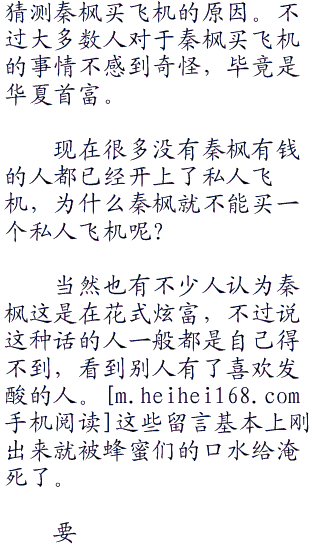 猜测秦枫买飞机的原因。不
过大多数人对于秦枫买飞机
的事情不感到奇怪，毕竟是
华夏首富。
现在很多没有秦枫有钱
的人都已经开上了私人飞
机，为什么秦枫就不能买一
个私人飞机呢？
当然也有不少人认为秦
枫这是在花式炫富，不过说
这种话的人一般都是自己得
不到，看到别人有了喜欢发
酸的人。[m.heihei168.com
手机阅读]这些留言基本上刚
出来就被蜂蜜们的口水给淹
死了。
要